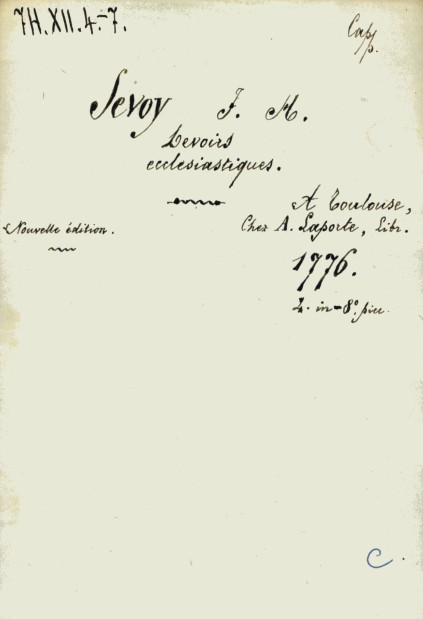 7H.XII.4.-7.
Capp.
Sevoy F. H.
Devoirs
ecclesiastiques.
A Toulouse,
Nouvelle édition.
Chez A. Laporte, Libr.
1776.
4. in-8°. picc.
C.